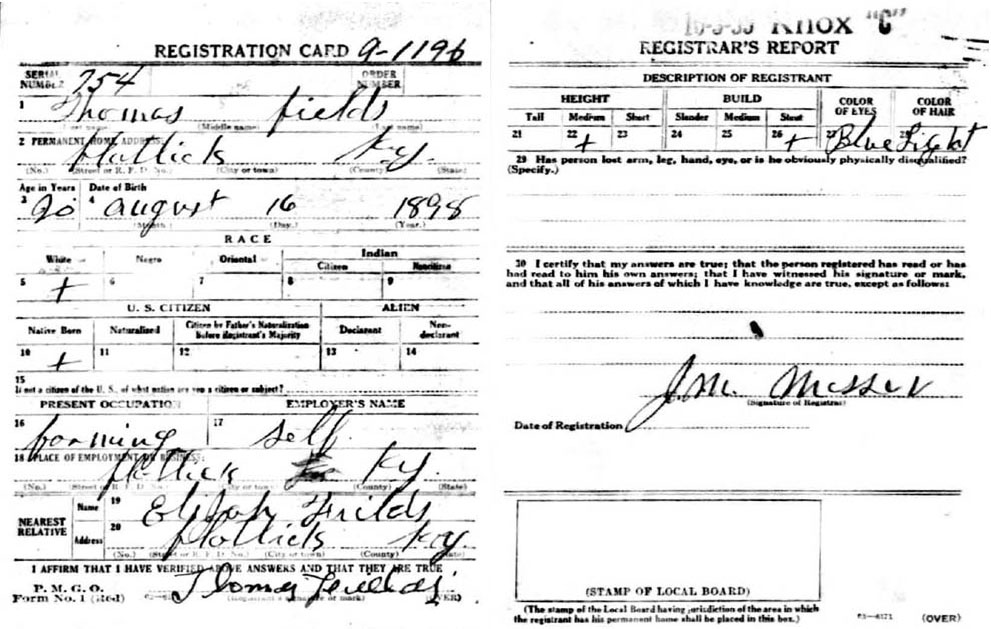 REGISTRATION CARD 9-1196
SERIAL NUMBER 754 ORDER NUMBER
1 Thomas fields
(First name) (Middle name) (Last name)
2 PERMANENT HOME ADDRESS:
Ky.
(No.) (Street or R. F. D. No.) (City or town) (County) (State)
Age in Years Date of Birth
3 20 4 August 16 1898
(Month) (Day.) (Year.)
RACE
White Negro Oriental Indian
Citizen Noncitizen
5 + 6 7 8 9
U. S. CITIZEN ALIEN
Native Born Naturalized Citizen by Father's Naturalization Before Registrant's Majority Declarant Non-declarant
10 + 11 12 13 14
15
If not a citizen of the U. S., of what nation are you a citizen or subject?
PRESENT OCCUPATION EMPLOYER'S NAME
16 farming 17 self
18 PLACE OF EMPLOYMENT OR BUSINESS:
Ky.
(No.) (Street or R. F. D. No.) (City or town) (County) (State)
NEAREST RELATIVE
Name 19 Elijah Fields
Address 20 Ky.
(No.) (Street or R. F. D. No.) (City or town) (County) (State)
I AFFIRM THAT I HAVE VERIFIED ABOVE ANSWERS AND THAT THEY ARE TRUE
P. M. G. O.
Form No. 1 (Red) Thomas
(Registrant's signature or mark) (OVER)
KNOX "C"
REGISTRAR'S REPORT
DESCRIPTION OF REGISTRANT
HEIGHT BUILD COLOR OF EYES COLOR OF HAIR
Tall Medium Short Slender Medium Stout
21 22 + 23 24 25 26 + 27 Blue 28 Light
29 Has person lost arm, leg, hand, eye, or is he obviously physically disqualified?
(Specify.)
30 I certify that my answers are true; that the person registered has read or has
had read to him his own answers; that I have witnessed his signature or mark,
and that all of his answers of which I have knowledge are true, except as follows:
J.M. Messer
(Signature of Registrar)
Date of Registration
(STAMP OF LOCAL BOARD)
(The stamp of the Local Board having jurisdiction of the area in which
the registrant has his permanent home shall be placed in this box.)
(OVER)